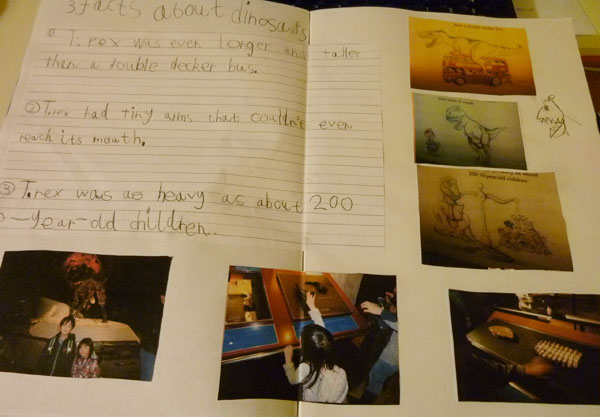 3 facts about dinosaurs
① T. rex was even longer and taller
than a double decker bus.
② T.rex had tiny arms that couldn't even
reach its mouth.
③ T.rex was as heavy as about 200
-year-old children.